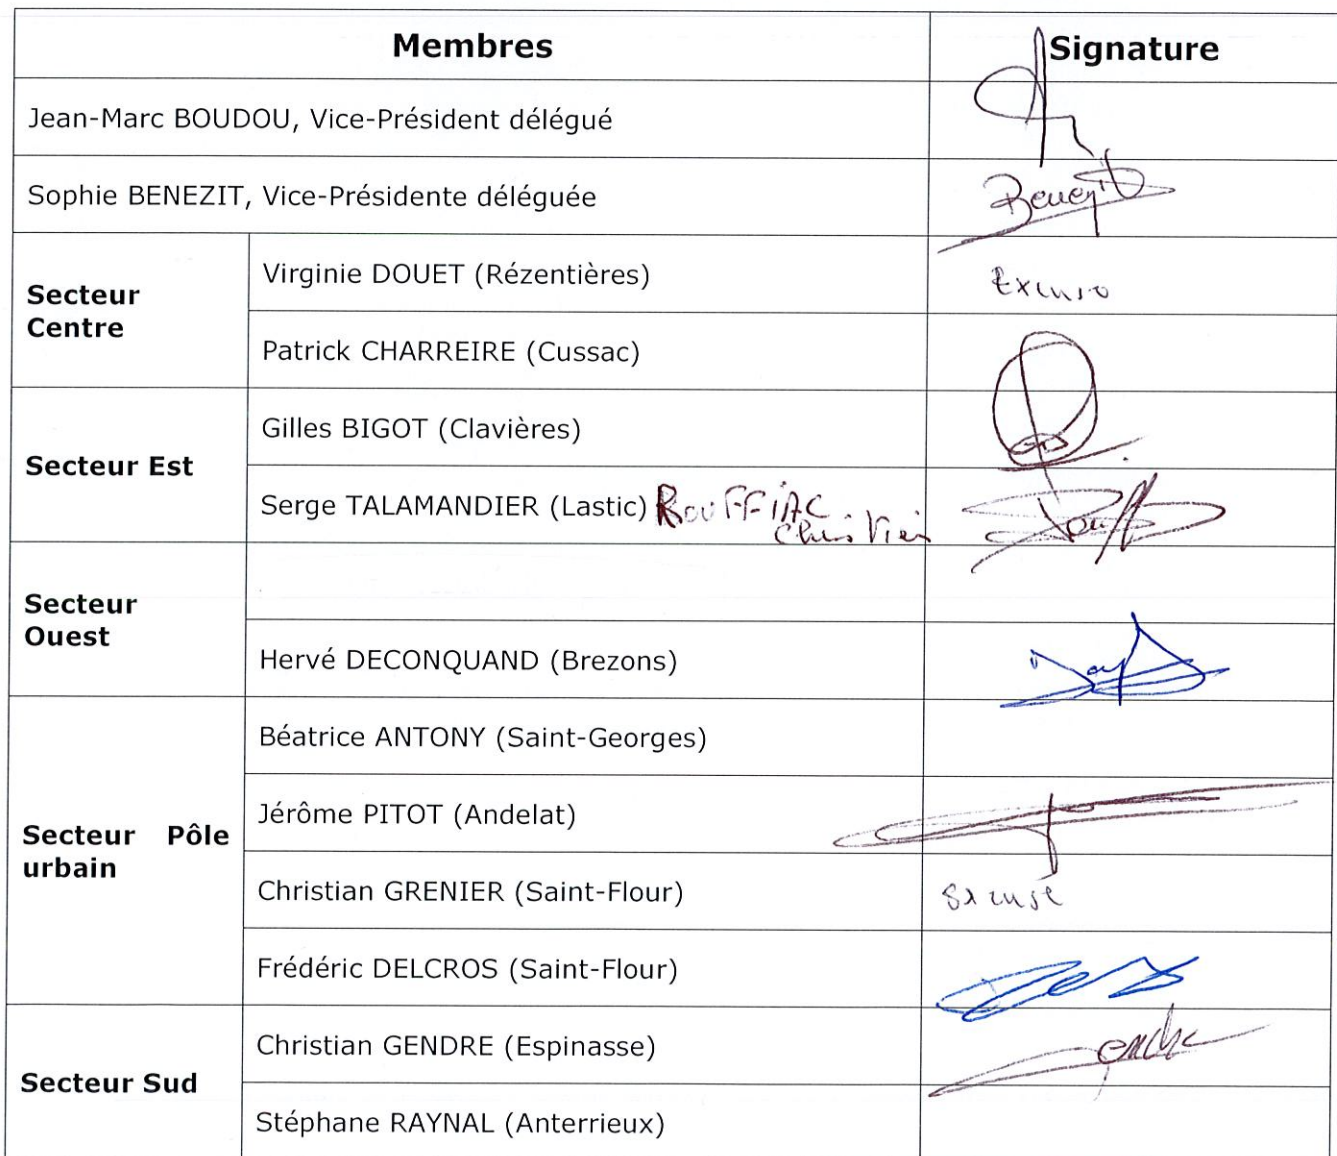 Membres Signature
Jean-Marc BOUDOU, Vice-Président délégué
Sophie BENEZIT, Vice-Présidente déléguée Benezit
Secteur
Centre
Virginie DOUET (Rézentières)
Patrick CHARREIRE (Cussac)
Secteur Est
Gilles BIGOT (Clavières)
Serge TALAMANDIER (Lastic) ROUFFIAC
Christian
Secteur
Ouest
Hervé DECONQUAND (Brezons)
Secteur Pôle
urbain
Béatrice ANTONY (Saint-Georges)
Jérôme PITOT (Andelat)
Christian GRENIER (Saint-Flour) excusé
Frédéric DELCROS (Saint-Flour)
Secteur Sud
Christian GENDRE (Espinasse) Gendre
Stéphane RAYNAL (Anterrieux)